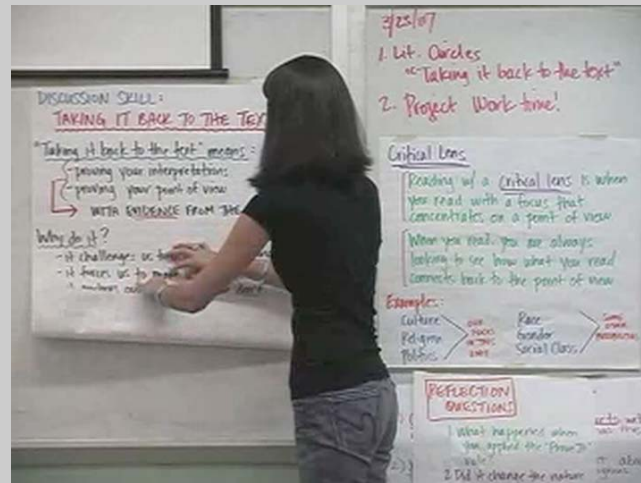 DISCUSSION SKILL:
TAKING IT BACK TO THE TEX
"Taking it back to the text" means:
- proving your interpretations
- proving your point of view
WITH EVIDENCE FROM THE
Why do it?
- it challenges us to
- it forces us to
3/23/07
1. Lit. Circles
"Taking it back to the text"
2. Project Work time!
Critical Lens
Reading w/ a critical lens is when
you read with a focus that
concentrates on a point of view
When you read, you are always
looking to see how what you read
connects back to the point of view
Examples:
Culture
Religion
Politics
Race
Gender
Social Class
REFLECTION
QUESTIONS
1. What happened when
you applied the "Prove It"
rule?
2. Did it change the nature